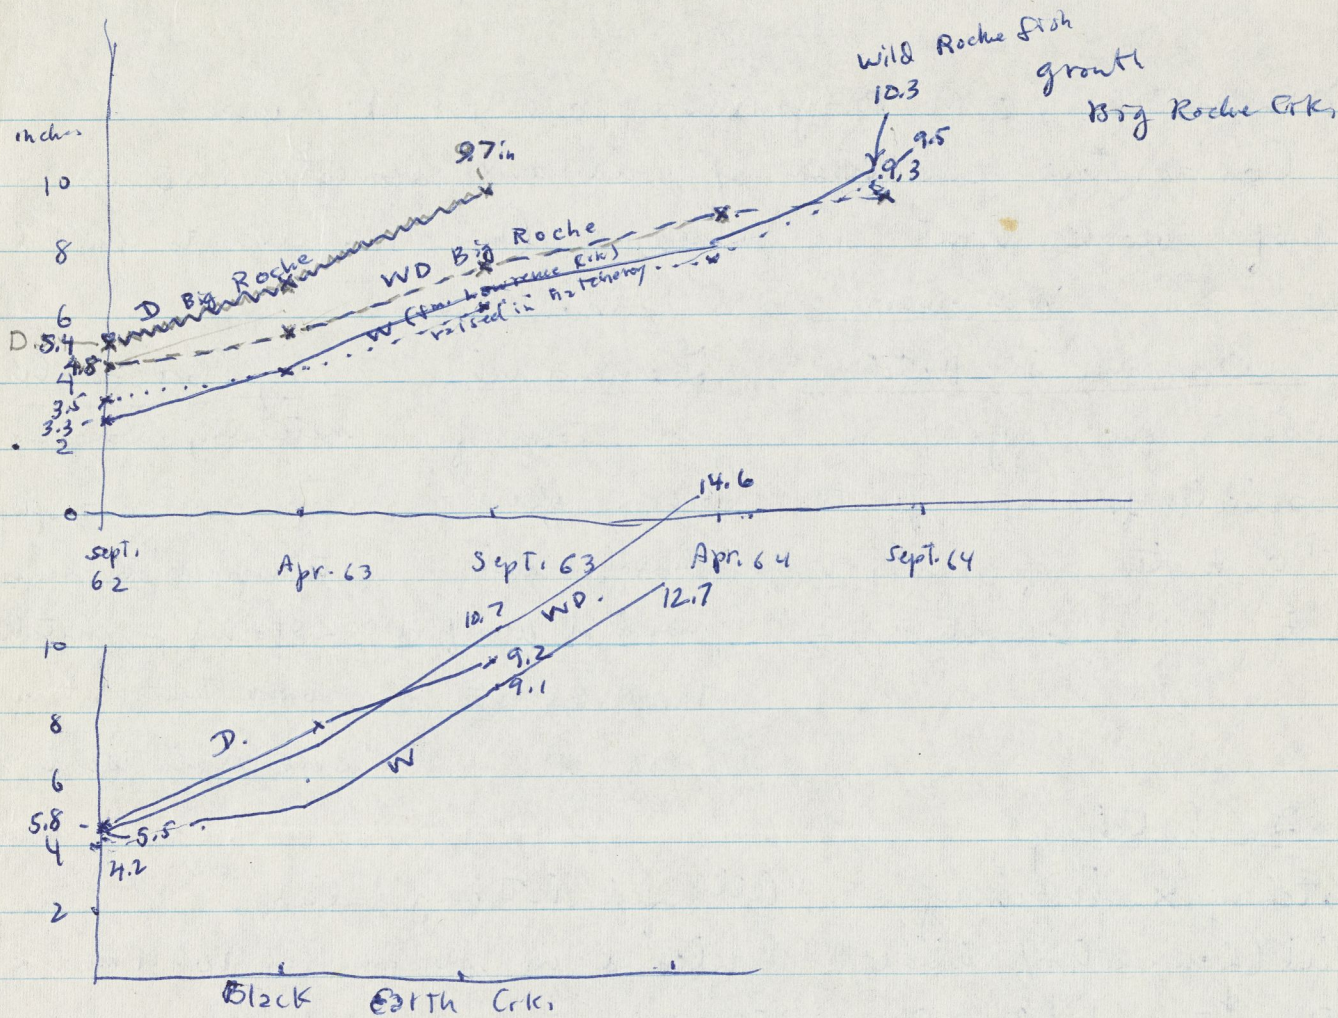 Wild Roche fish
growth
Big Roche Crk.
10.3
inches
9.7 in
9.5
9.3
10
8
D Big Roche
WD Big Roche
W (fm. Lawrence Crk)
raised in hatchery
6
D. 5.4
4.8
4
3.5
3.3
2
0
14.6
Sept. 62
Apr. 63
Sept. 63
Apr. 64
Sept. 64
12.7
10.7
WD.
10
9.2
9.1
8
D.
W
6
5.8
5.5
4
4.2
2
Black Earth Crk.